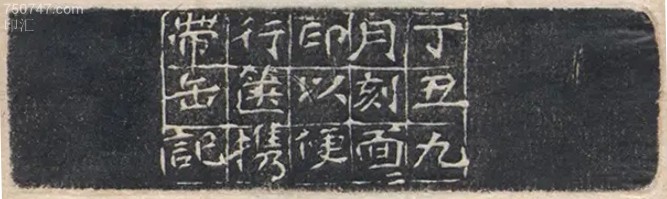 750747.com
印汇
丁丑九
月刻面二
印以便
行篋携
帶缶記